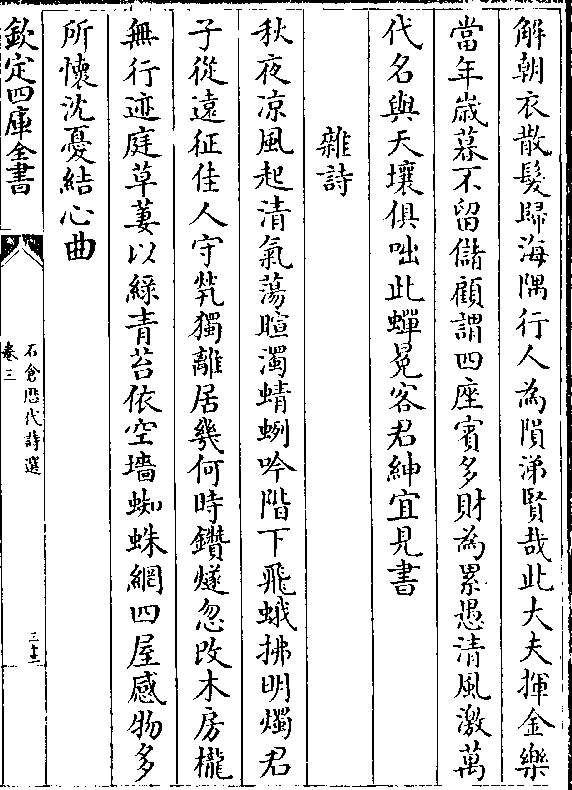 解朝衣散髮歸海隅行人為隕涕賢哉此大夫揮金樂
當年歳暮不留儲顧謂四座賓多財為累愚清風激萬
代名與天壤俱咄此蟬冕客君紳宜見書
雜詩
秋夜凉風起清氣蕩暄濁蜻蛚吟階下飛蛾拂明燭君
子從遠征佳人守煢獨離居幾何時鑽燧忽改木房櫳
無行迹庭草萋以綠青苔依空墻蜘蛛網四屋感物多
所懷沈憂結心曲
欽定四庫全書
石倉歴代詩選
卷三
三十三